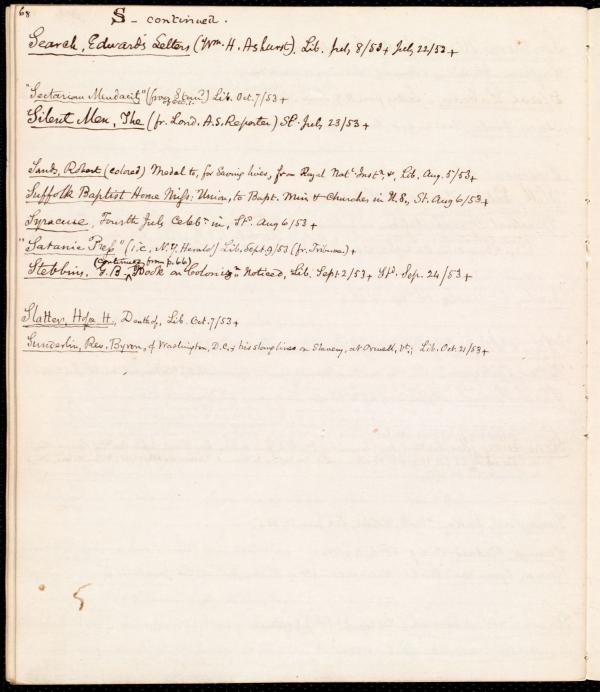 68
S - continued.
Search, Edward's Letters (Wm. H. Ashurst). Lib. July 8/53 + July 22/53 +
"Sectarian Mendacity" (from Lib. Oct. 7/53 +
Silent Men, The (fr. Lond. A.S. Reporter) St. July 23/53 +
Sands, Robert (colored) Medal to, for Saving lives, from Royal Natl. Instn., &, Lib. Aug. 5/53 +
Suffolk Baptist Home Miss: Union, to Bapt. Min & Churches in U.S., St. Aug 6/53 +
Syracuse, Fourth July Celebn. in, Std. Aug 6/53 +
"Satanic Press" (i.e., N.Y. Herald) Lib. Sept. 9/53 (fr. Tribune) +
(continued from p. 66)
Stebbins, G. B. Book on Colonizn. Noticed, Lib. Sept 2/53 + Std. Sep. 24/53 +
Slatter, Hope H., Death of, Lib. Oct. 7/53 +
Sunderlin, Rev. Byron, of Washington, D.C., & his slang lines on Slavery, at Orwell, Vt.; Lib. Oct. 21/53 +